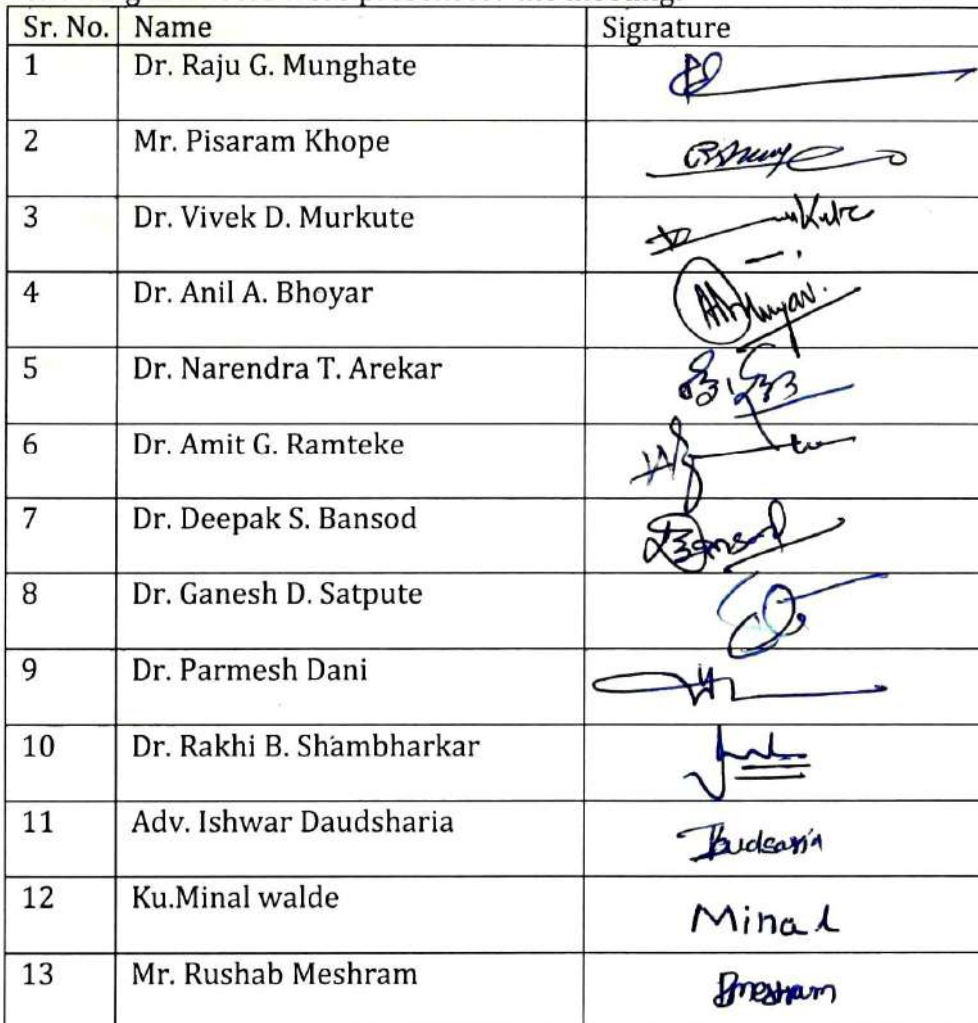 Sr. No. Name Signature
1 Dr. Raju G. Munghate
2 Mr. Pisaram Khope
3 Dr. Vivek D. Murkute
4 Dr. Anil A. Bhoyar
5 Dr. Narendra T. Arekar
6 Dr. Amit G. Ramteke
7 Dr. Deepak S. Bansod Bansod
8 Dr. Ganesh D. Satpute
9 Dr. Parmesh Dani
10 Dr. Rakhi B. Shambharkar
11 Adv. Ishwar Daudsharia
12 Ku.Minal walde Minal
13 Mr. Rushab Meshram